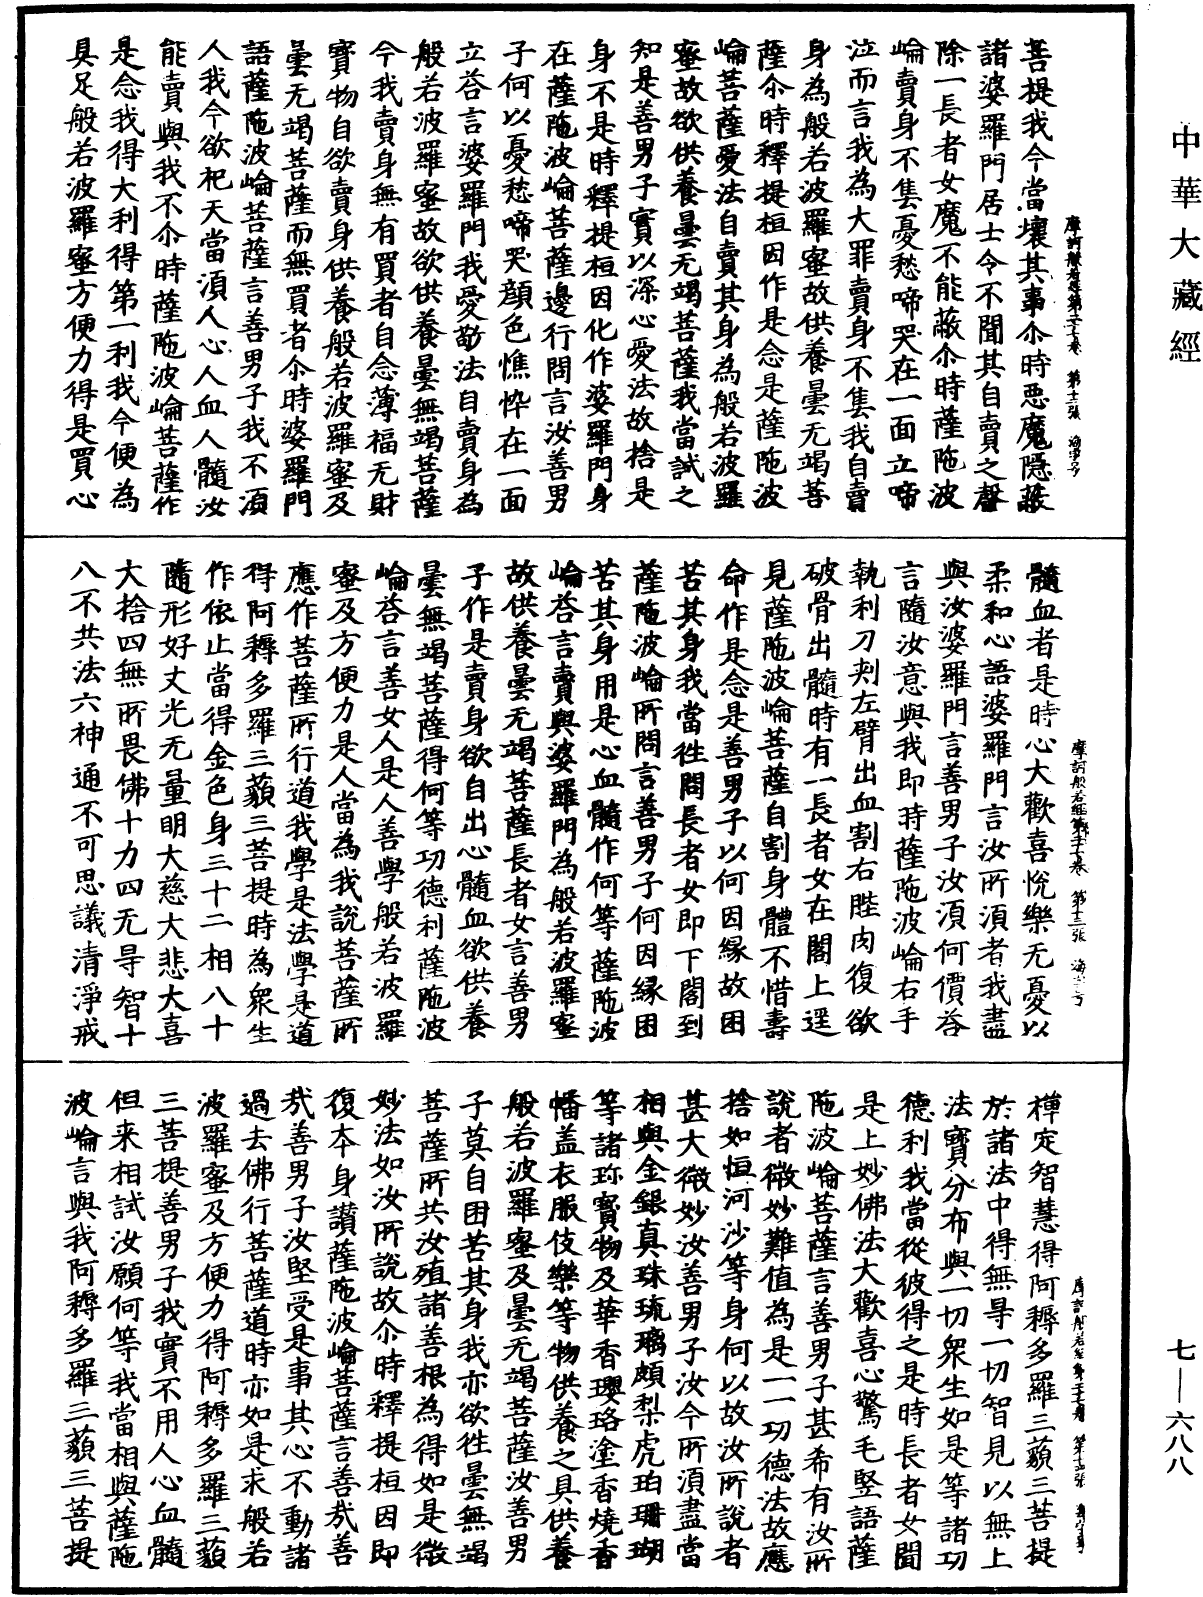 中華大藏經
菩提我今當壞其事尒時惡魔隱蔽
諸婆羅門居士令不聞其自賣之聲
除一長者女魔不能蔽尒時薩陁波
崙賣身不售憂愁啼哭在一面立啼
泣而言我為大罪賣身不售我自賣
身為般若波羅蜜故供養曇无竭菩
薩尒時釋提桓因作是念是薩陁波
崙菩薩愛法自賣其身為般若波羅
蜜故欲供養曇无竭菩薩我當試之
知是善男子實以深心愛法故捨是
身不是時釋提桓因化作婆羅門身
在薩陁波崙菩薩邊行問言汝善男
子何以憂愁啼哭顔色憔悴在一面
立荅言婆羅門我愛敬法自賣身為
般若波羅蜜故欲供養曇無竭菩薩
今我賣身無有買者自念薄福无財
寳物自欲賣身供養般若波羅蜜及
曇无竭菩薩而無買者尒時婆羅門
語薩陁波崙菩薩言善男子我不湏
人我今欲祀天當湏人心人血人髓汝
能賣與我不尒時薩陁波崙菩薩作
是念我得大利得第一利我今便為
具足般若波羅蜜方便力得是買心
髓血者是時心大歡喜恱樂无憂以
柔和心語婆羅門言汝所湏者我盡
與汝婆羅門言善男子汝湏何價荅
言隨汝意與我即時薩陁波崙右手
執利刀刾左臂出血割右䏶肉復欲
破骨出髓時有一長者女在閣上遥
見薩陁波崙菩薩自割身體不惜壽
命作是念是善男子以何因緣故困
苦其身我當徃問長者女即下閣到
薩陁波崙所問言善男子何因緣困
苦其身用是心血髓作何等薩陁波
崙荅言賣與婆羅門為般若波羅蜜
故供養曇无竭菩薩長者女言善男
子作是賣身欲自出心髓血欲供養
曇無竭菩薩得何等功德利薩陁波
崙荅言善女人是人善學般若波羅
蜜及方便力是人當為我說菩薩所
應作菩薩所行道我學是法學是道
得阿耨多羅三藐三菩提時為衆生
作依止當得金色身三十二相八十
隨形好丈光无量明大慈大悲大喜
大捨四無所畏佛十力四无㝵智十
八不共法六神通不可思議清淨戒
禪定智慧得阿耨多羅三藐三菩提
於諸法中得無㝵一切智見以無上
法寳分布與一切衆生如是等諸功
德利我當從彼得之是時長者女聞
是上妙佛法大歡喜心驚毛竪語薩
陁波崙菩薩言善男子甚希有汝所
說者微妙難值為是一一功德法故應
捨如恒河沙等身何以故汝所說者
甚大微妙汝善男子汝今所湏盡當
相與金銀真珠琉璃頗梨虎珀珊瑚
等諸珎寳物及華香瓔珞塗香燒香
幡盖衣服伎樂等物供養之具供養
般若波羅蜜及曇无竭菩薩汝善男
子莫自困苦其身我亦欲徃曇無竭
菩薩所共汝殖諸善根為得如是微
妙法如汝所說故尒時釋提桓因即
復本身讃薩陁波崙菩薩言善㢤善
㢤善男子汝堅受是事其心不動諸
過去佛行菩薩道時亦如是求般若
波羅蜜及方便力得阿耨多羅三藐
三菩提善男子我實不用人心血髓
但来相試汝願何等我當相與薩陁
波崙言與我阿耨多羅三藐三菩提
七—六八八